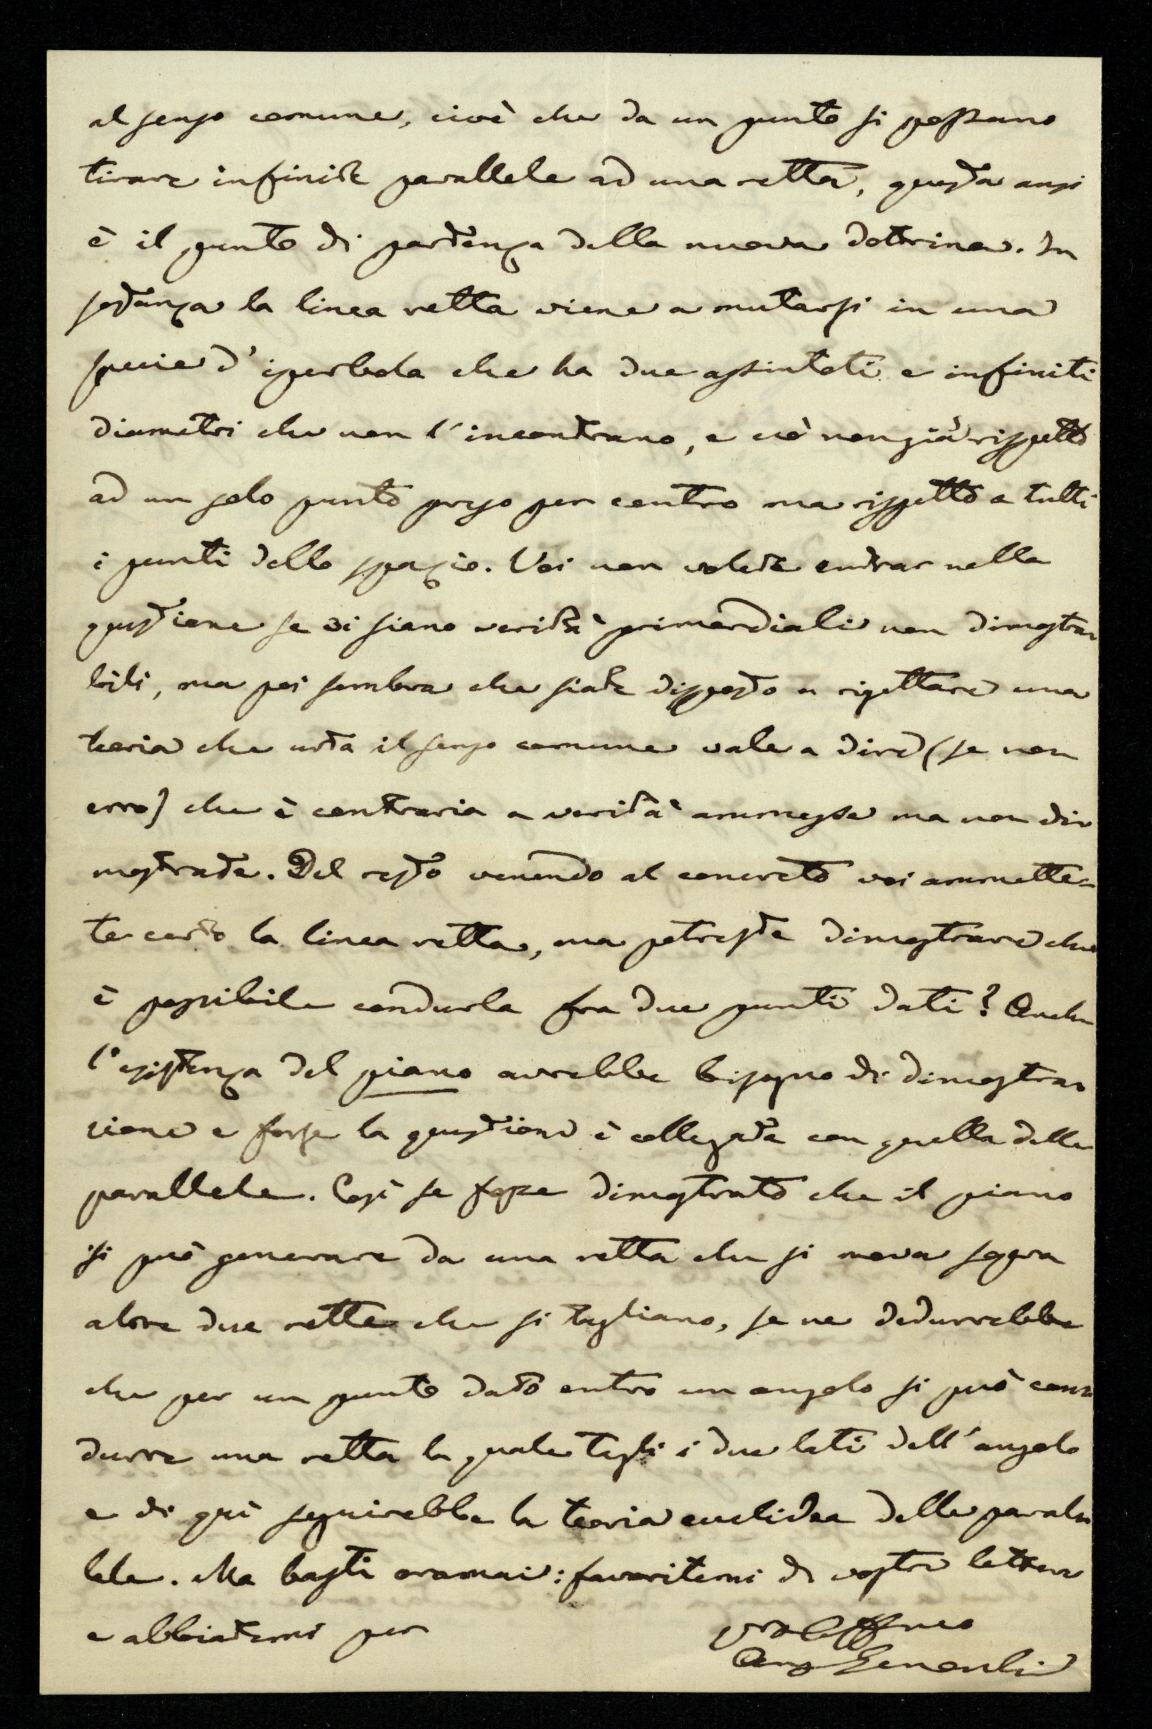 al senso comune, cioè che da un punto si possano
tirare infinite parallele ad una retta, questa anzi
è il punto di partenza della nuova dottrina. In
sostanza la linea retta viene a mutarsi in una
specie d'iperbola che ha due assintoti e infiniti
diametri che non l'incontrano, e ciò non già rispetto
ad un solo punto preso per centro ma rispetto a tutti
i punti dello spazio. Voi non volete entrar nella
questione se vi siano verità primordiali non dimostra-
bili, ma poi sembra che siate disposto a rigettare una
teoria che urta il senso comune vale a dire (se non
erro) che è contraria a verità ammesse ma non di-
mostrate. Del resto venendo al concreto voi ammette-
te certo la linea retta, ma potreste dimostrare che
è possibile condurla fra due punti dati? Anche
l'esistenza del piano avrebbe bisogno di dimostra-
zione e forse la questione è collegata con quella delle
parallele. Così se fosse dimostrato che il piano
si può generare da una retta che si mova sopra
altre due rette che si tagliano, se ne dedurrebbe
che per un punto dato entro un angolo si può con-
durre una retta la quale tagli i due lati dell'angolo
e di quì seguirebbe la teoria euclidea delle paralle-
lele. Ma basti oramai: favoritemi di vostre lettere
e abbiatemi per
Vro Affmo
Ang Genocchi